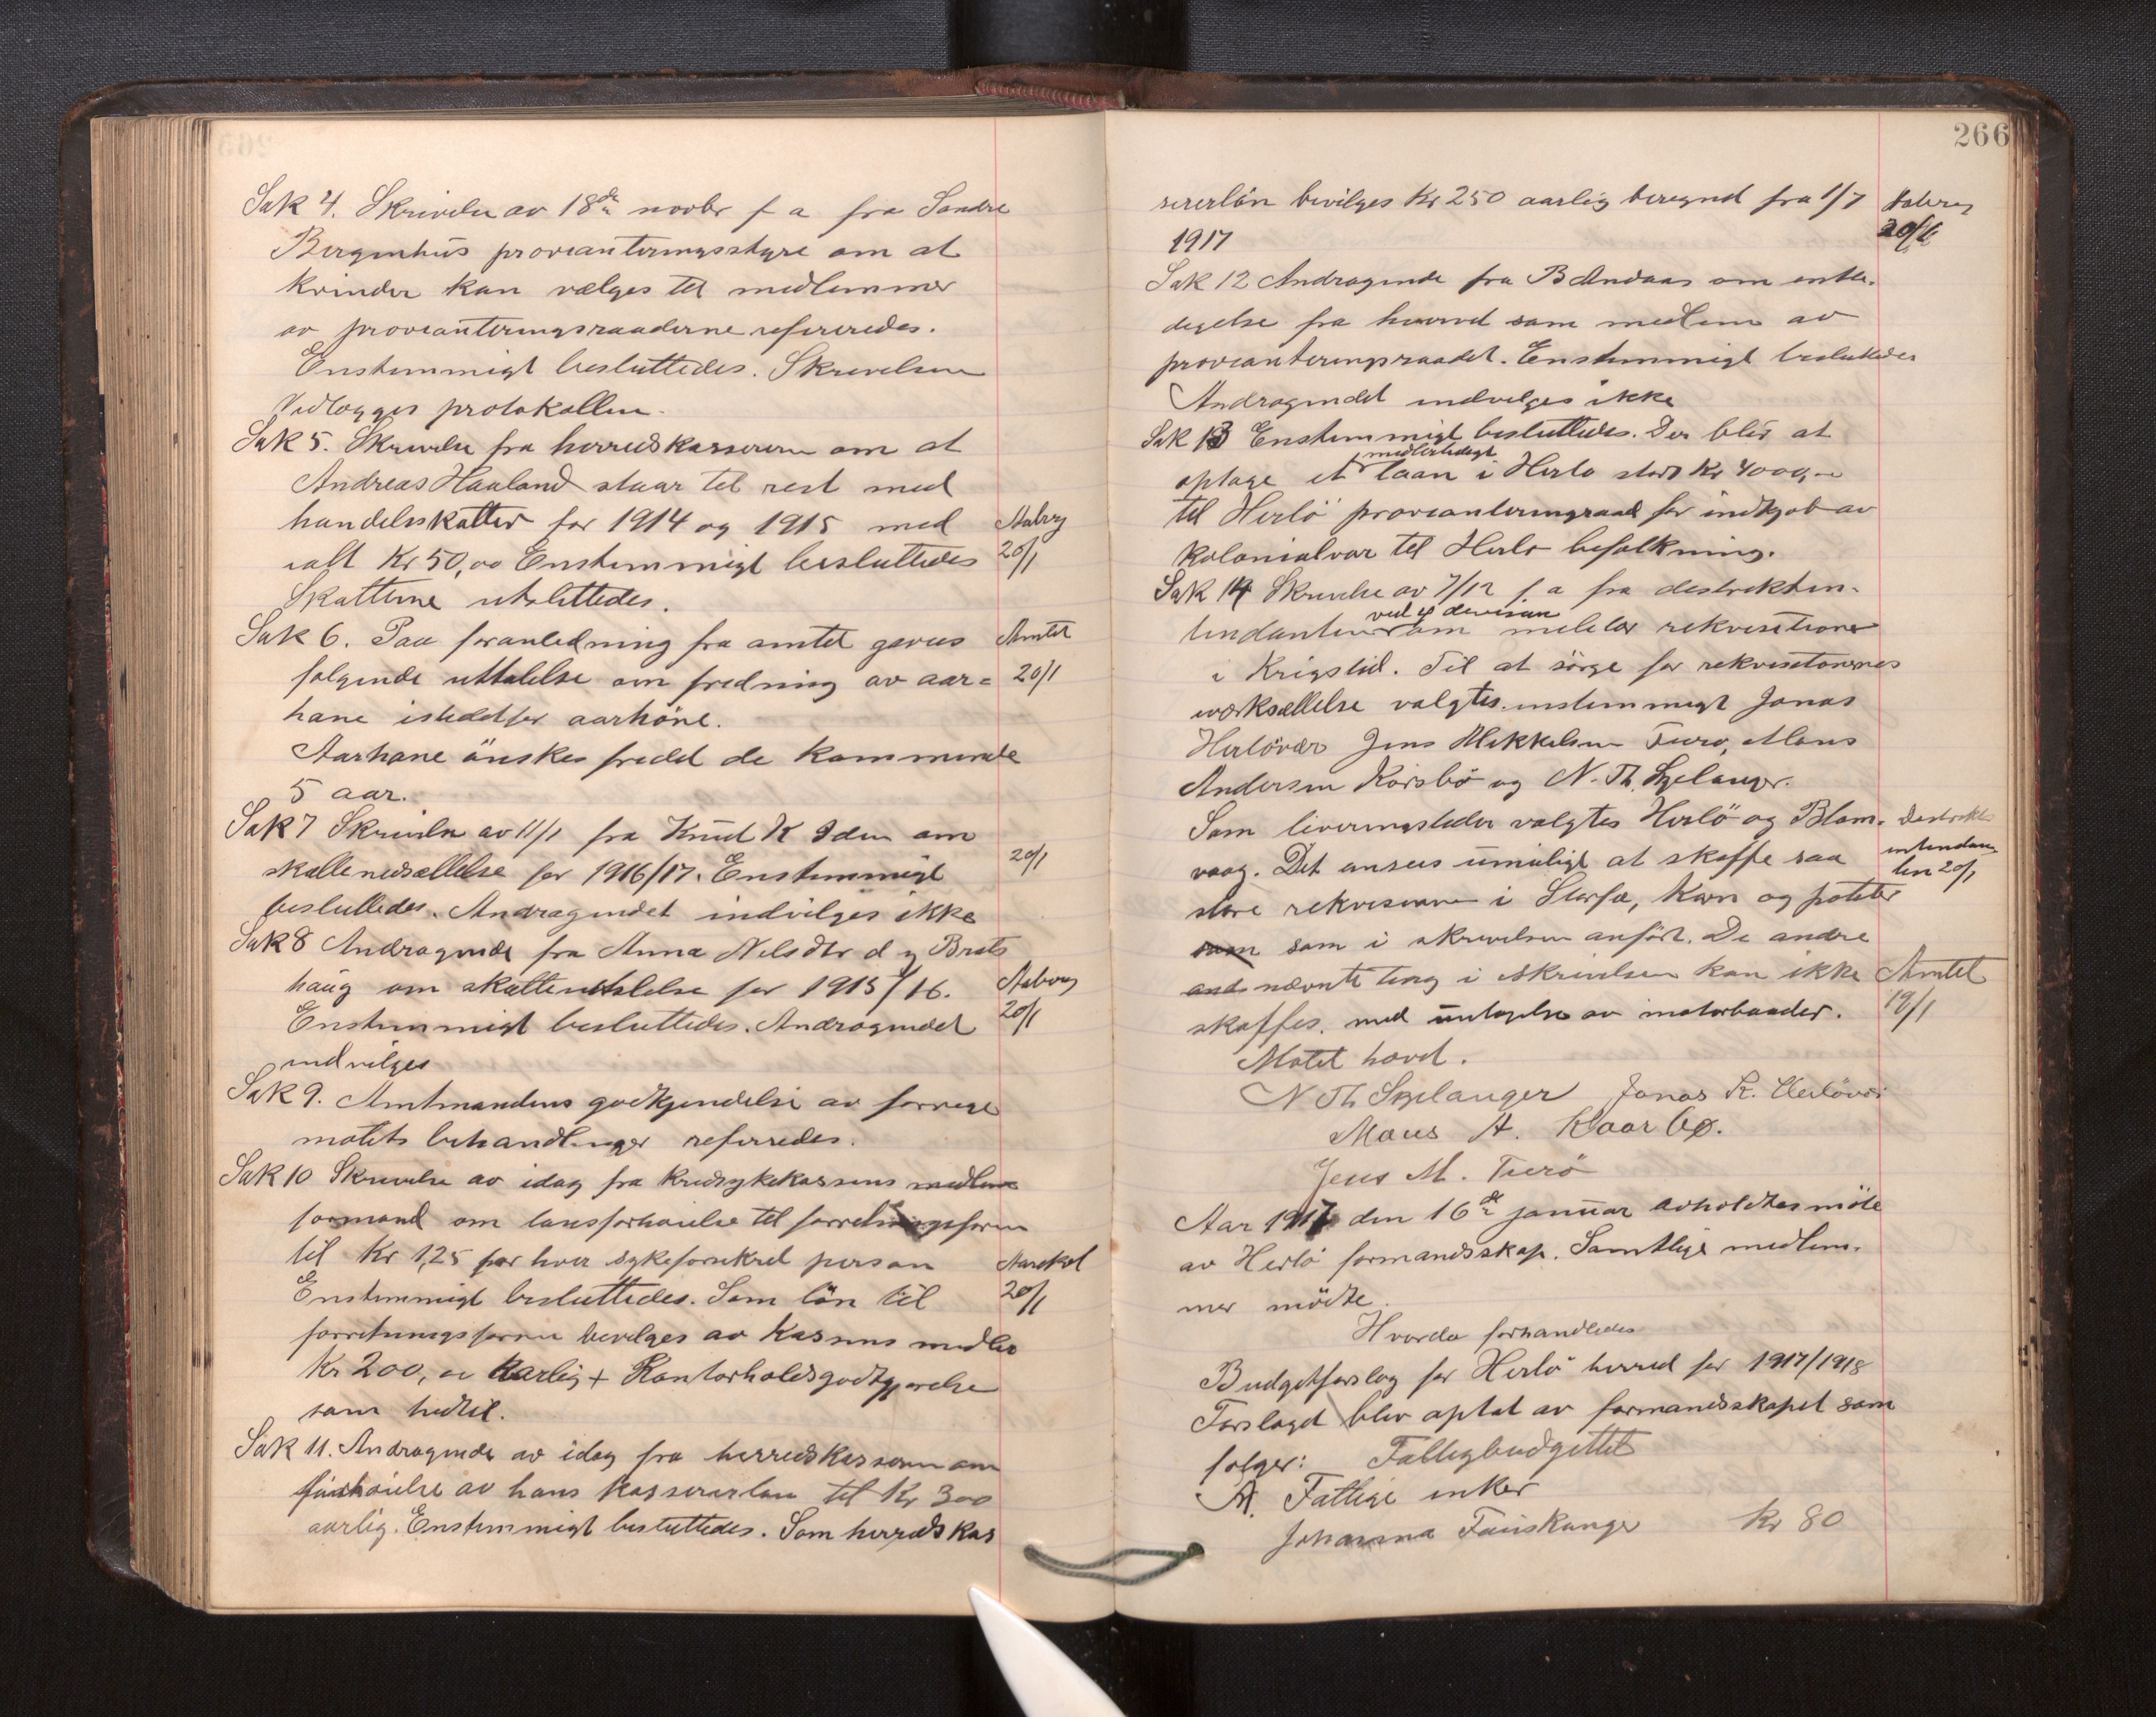 Sak 4. Skrivelse av 18de novbr f a fra Søndre
Bergenhus provianteringsstyre om at
kvinder kan vælges til medlemmer
av provianteringsraaderne refereredes.
Enstemmigt besluttedes. Skrivelsen
Vedlægges protokollen.
Sak 5. Skrivelse fra herredskassereren om at
Andreas Haaland staar til rest med
handelsskatter for 1914 og 1915 med
ialt Kr 50,00 Enstemmigt besluttedes
Skatterne utslettedes.
Aabrey
20/1
Sak 6. Paa foranledning fra amtet gaves
følgende uttalelse om fredning av aar=
hane istedetfor aarhöne.
Aarhane önskes fredet de kommende
5 aar.
Amtet
20/1
Sak 7 Skrivelse av 11/1 fra Knud K Iden om
skattenedsættelse for 1916/17. Enstemmigt
besluttedes. Andragendet indvilges ikke
20/1
Sak 8 Andragende fra Anna Nilsdtr d y Brats
haug om skatteutslettelse for 1915/16.
Enstemmigt besluttedes. Andragendet
indvilges
Aabrey
20/1
Sak 9. Amtmandens godkjendelse av forrige
møtets behandlinger refereredes.
Sak 10 Skrivelse av idag fra kredssykekassens medlem
formand om lønsforhøielse til forretningsføren
til Kr 1,25 for hver sykeforsikred person
Enstemmigt besluttedes. Som lön til
forretningsføren bevilges av kassens midler
Kr 200, 00 aarlig + Kontorholdsgodtgjørelse
som hidtil.
20/1
Sak 11. Andragende av idag fra herredskassereren om
forhøielse av hans kassererløn til Kr 300
aarlig. Enstemmigt besluttedes. Som herredskas
266
sererlön bevilges Kr 250 aarlig beregned fra 1/7
1917
Sak 12 Andragende fra B Andaas om entle-
digelse fra hvervet som medlem av
provianteringsraadet. Enstemmigt besluttedes
Andragendet indvilges ikke
Sak 13 Enstemmigt besluttedes. Der blir at
optage et midlertidigt laan i Herlø stort Kr 4000,-
til Herlö provianteringsraad for indkjøb av
kolonialvar til Herlø befolkning.
Sak 14 Skrivelse av 7/12 f a fra distriktsin-
tendanten ved 4 divisjon om militær rekvisitioner
i Krigstid. Til at sörge for rekvisitionernes
iverksættelse valgtes enstemmigt Jonas
Herlövær Jens Mikkelsen Turø, Mons
Andersen Kørsbö og N. Th. Skjelanger.
Som leveringsteder valgtes Herlö og Blom-
vaag. Det ansees umuligt at skaffe saa
store rekvisisioner i Storfæ, Korn og poteter
som som i skrivelsen anført. De andre
and nævnte ting i skrivelsen kan ikke
skaffes. med undtagelse av motorbaader.
Distrikts
intendan
ten 20/1
Amtet
19/1
Møtet hævet.
N Th Skjelanger Jonas K. Herlövær
Mons A. Kaarbø.
Jens M. Turö
Aar 1917 den 16de januar avholdtes möte
av Herlö formandsskap. Samtlige medlem-
mer mödte.
Hvorda forhandledes
Budgetforslag for Herlö herred for 1917/1918
Forslaget blev optat av formandsskapet som
følger: Fattigbudgettet
A. Fattige enker
Johanna Fauskanger Kr 80